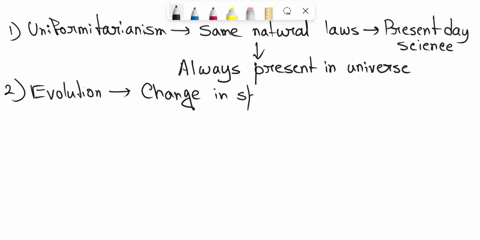 1) Uniformitarianism → Same natural laws → Present day
science
↓
Always present in universe
2) Evolution → Change in sp